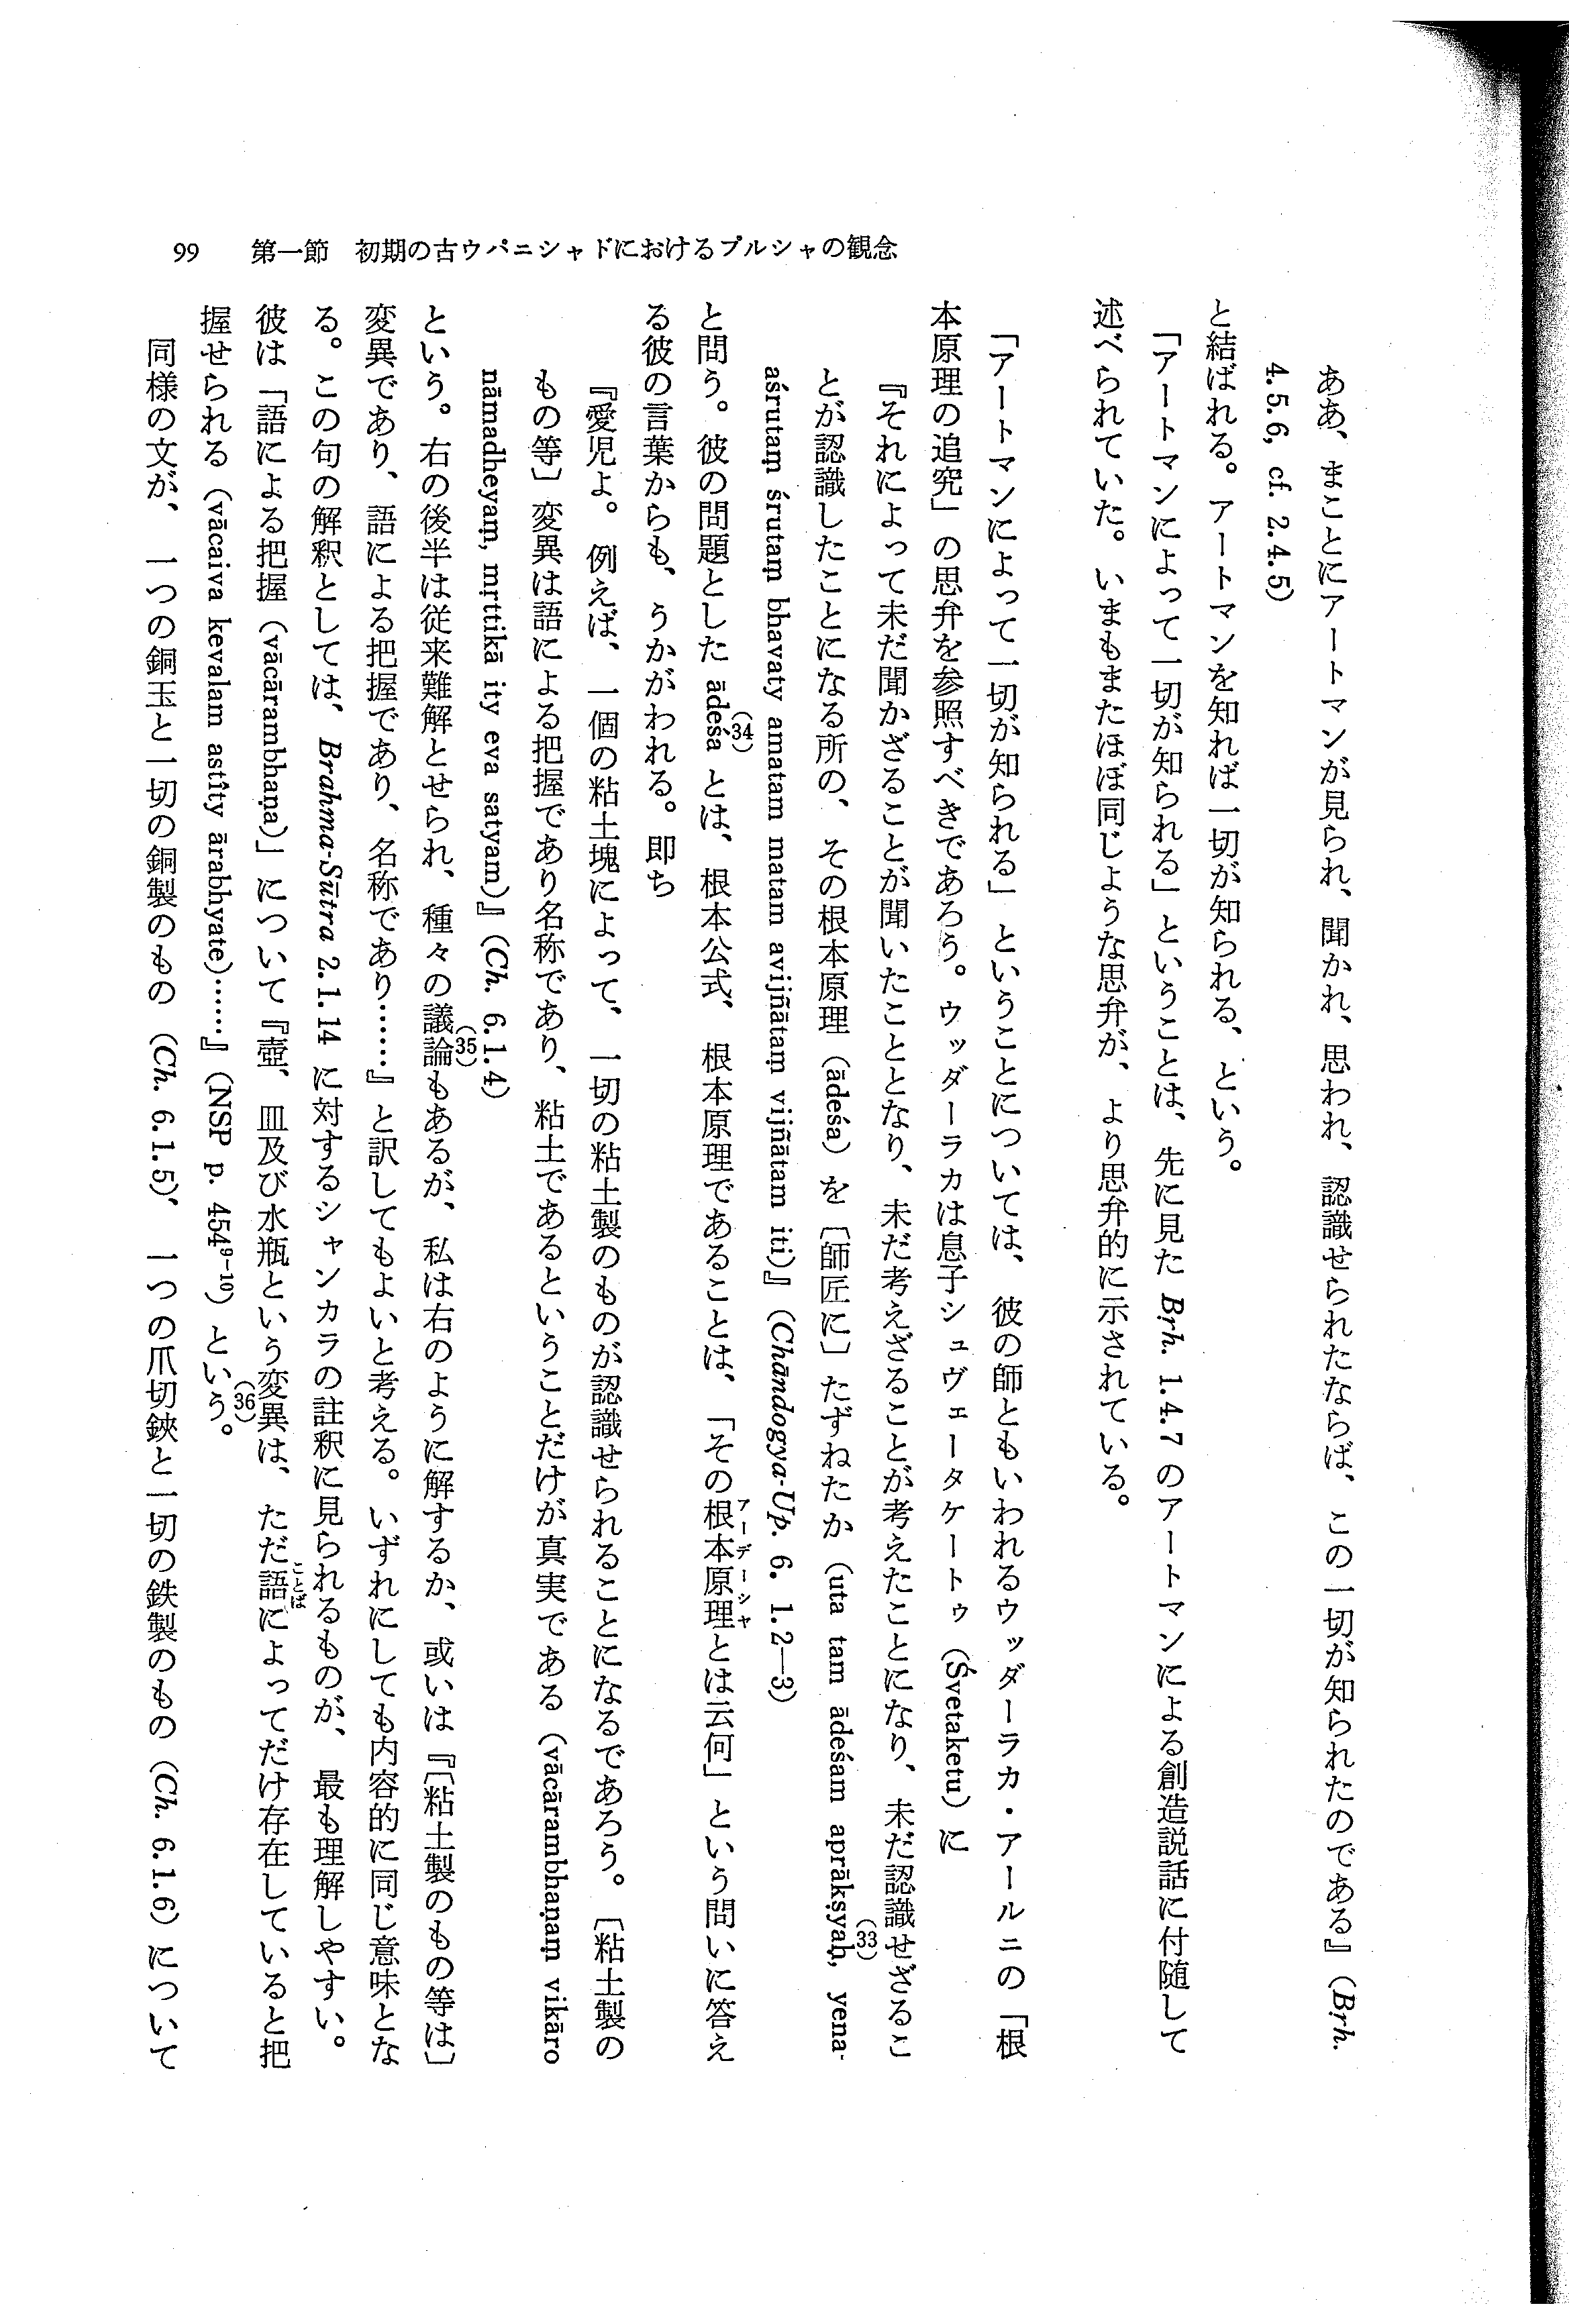 99 第一節 初期の古ウパニシャドにおけるプルシャの観念
ああ、まことにアートマンが見られ、聞かれ、思われ、認識せられたならば、この一切が知られたのである』(Bṛh.
4.5.6, cf. 2.4.5)
と結ばれる。アートマンを知れば一切が知られる、という。
「アートマンによって一切が知られる」ということは、先に見た Bṛh. 1.4.7 のアートマンによる創造説話に付随して
述べられていた。いまもまたほぼ同じような思弁が、より思弁的に示されている。
「アートマンによって一切が知られる」ということについては、彼の師ともいわれるウッダーラカ・アールニの「根
本原理の追究」の思弁を参照すべきであろう。ウッダーラカは息子シュヴェータケートゥ(Śvetaketu)に
『それによって未だ聞かざることが聞いたこととなり、未だ考えざることが考えたことになり、未だ認識せざるこ
とが認識したことになる所の、その根本原理(ādeśa)を〔師匠に〕たずねたか(uta tam ādeśam aprākṣyaḥ,(33) yena-
aśrutaṃ śrutaṃ bhavaty amatam matam avijñātaṃ vijñātam iti)』(Chāndogya-Up. 6. 1.2—3)
と問う。彼の問題とした ādeśa(34) とは、根本公式、根本原理であることは、「その根本原理(アーデーシャ)とは云何」という問いに答え
る彼の言葉からも、うかがわれる。即ち
『愛児よ。例えば、一個の粘土塊によって、一切の粘土製のものが認識せられることになるであろう。〔粘土製の
もの等〕変異は語による把握であり名称であり、粘土であるということだけが真実である(vācārambhaṇaṃ vikāro
nāmadheyaṃ, mṛttikā ity eva satyam)』(Ch. 6.1.4)
という。右の後半は従来難解とせられ、種々の議論(35)もあるが、私は右のように解するか、或いは『〔粘土製のもの等は〕
変異であり、語による把握であり、名称であり……』と訳してもよいと考える。いずれにしても内容的に同じ意味とな
る。この句の解釈としては、Brahma-Sūtra 2.1.14 に対するシャンカラの註釈に見られるものが、最も理解しやすい。
彼は「語による把握(vācārambhaṇa)」について『壺、皿及び水瓶という変異は、ただ語(ことば)によってだけ存在していると把
握せられる(vācaiva kevalam astîty ārabhyate)……』(NSP p. 454⁹⁻¹⁰)という(36)。
同様の文が、一つの銅玉と一切の銅製のもの(Ch. 6.1.5)、一つの爪切鋏と一切の鉄製のもの(Ch. 6.1.6)について